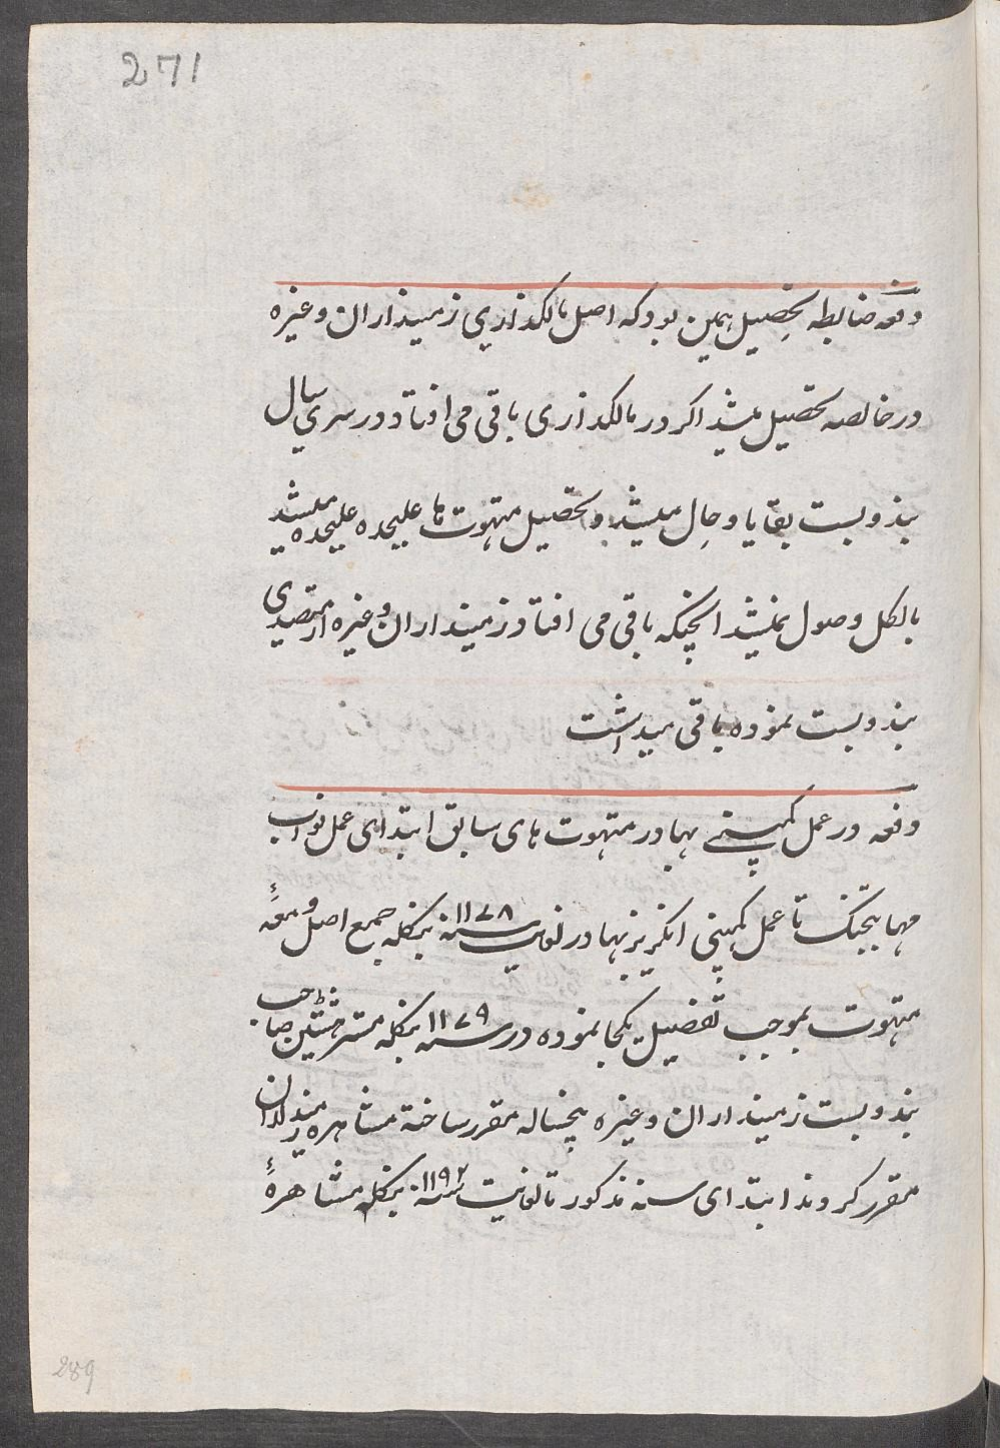 271
دفعه ضابطه تحصیل همین بود که اصل مالگذاری زمینداران وغیره
در خالصه تحصیل میشد اکر در مالگذاری باقی می افتاد در سری سال
بندوبست بقایا و حال میشد و تحصیل متهوت ها علیحده علیحده میشد
بالکل وصول نمیشد انچکه باقی می افتاد زمینداران وغیره از متصدی
بندوبست نموده باقی میداشت
دفعه در عمل کمپنی بهادر متهوت های سابق ابتدای عمل نواب
مهابتجنک تا عمل کمپنی انکریز بهادر لغایت سنه ۱۱۷۸ بنکله جمع اصل و معه
متهوت بموجب تفصیل یکجا نموده در سنه ۱۱۷۹ بنکله مستر هشتین صاحب
بندوبست زمینداران وغیره پنجساله مقرر ساخته مشاهره زمینداران
مقرر کردند ابتدای سنه مذکور تا لغایت سنه ۱۱۹۲ بنکله مشاهرهٔ
289